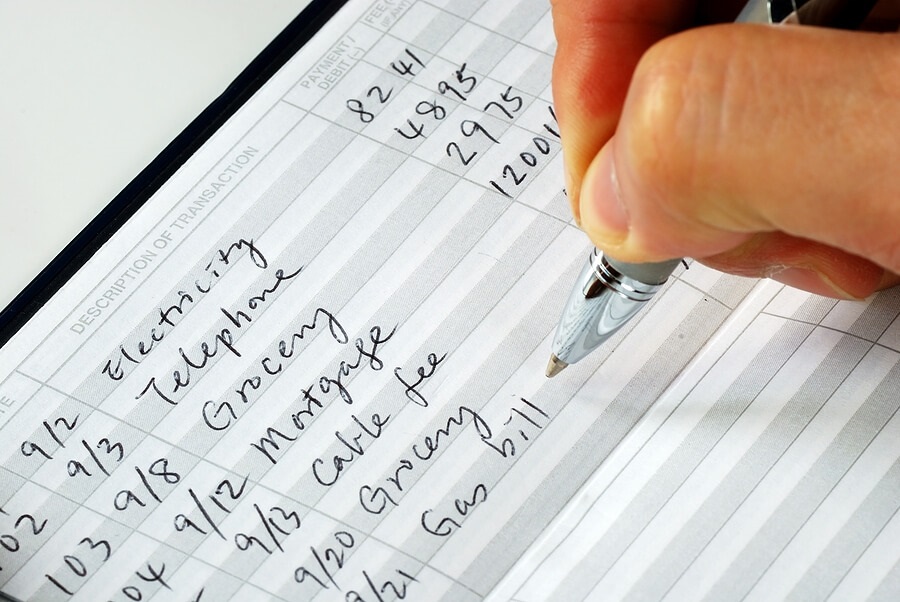 TE DESCRIPTION OF TRANSACTION PAYMENT/ DEBIT (-) FEE (IF ANY)
9/2 Electricity 82 41
02 9/3 Telephone 48 95
103 9/8 Grocery 29 75
04 9/12 Mortgage 1200
9/13 Cable fee
9/20 Grocery
9/21 Gas bill